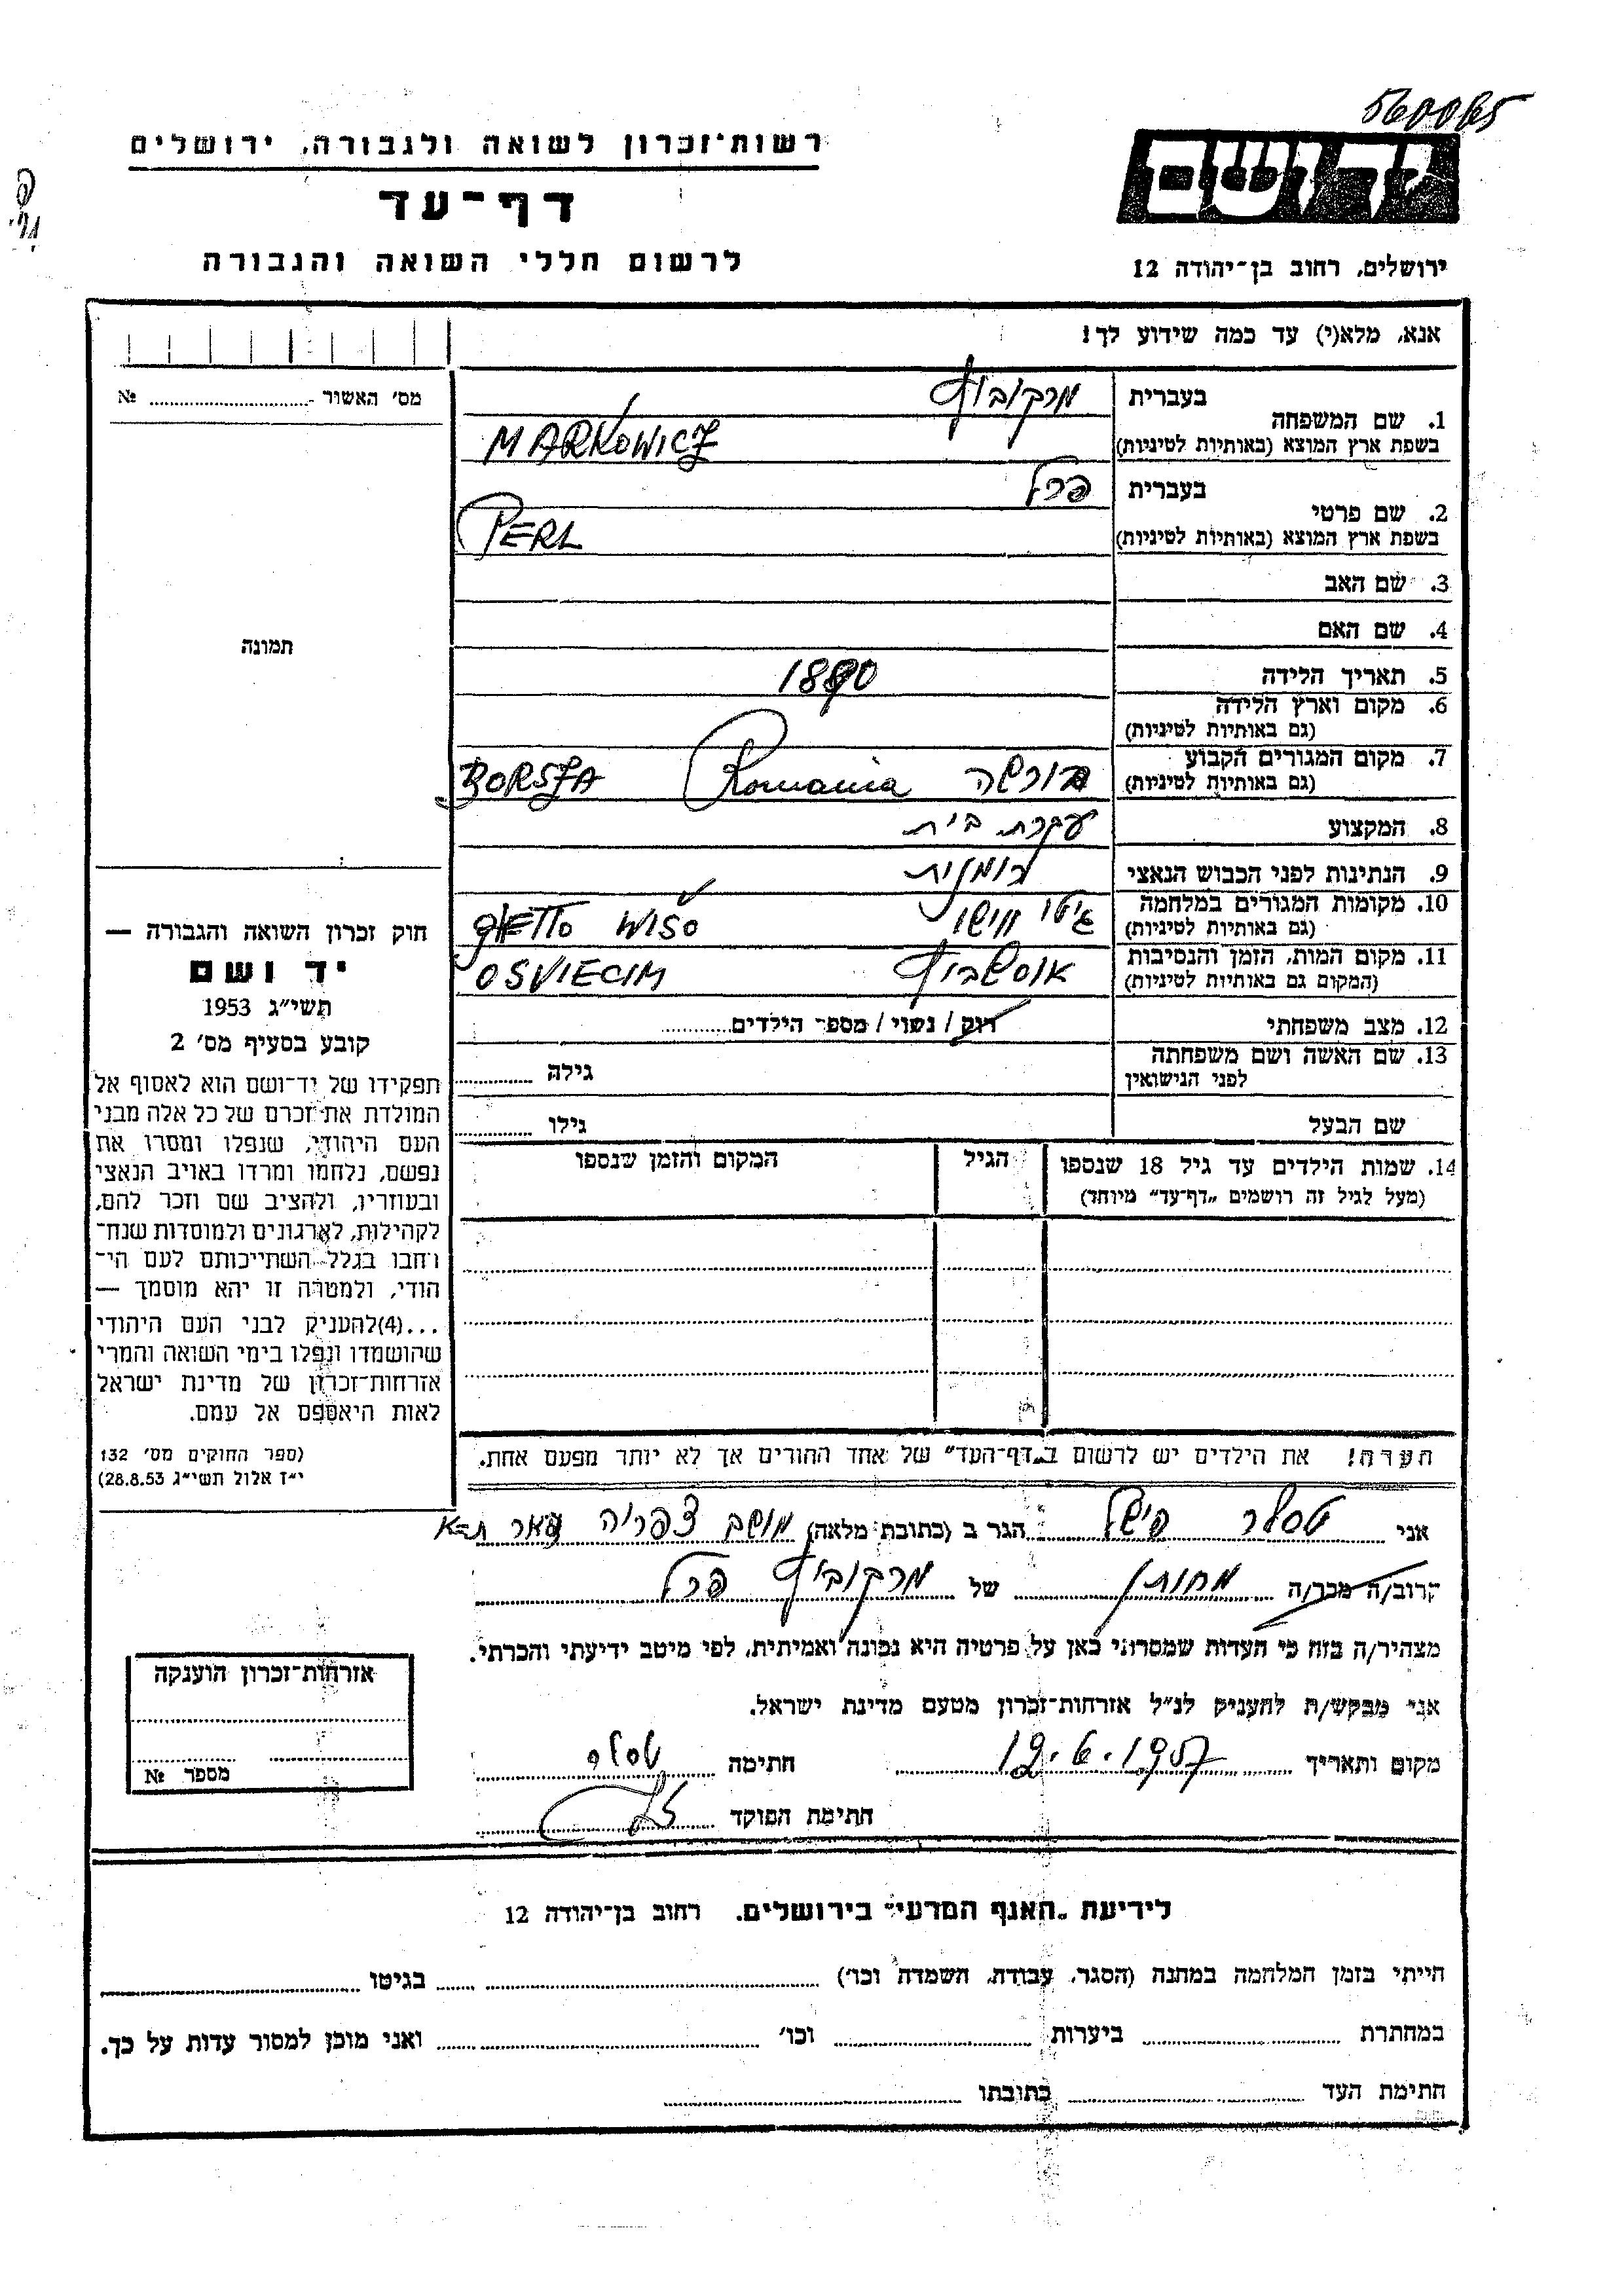 560065
רשות־זכרון לשואה ולגבורה, ירושלים
יד ושם
דף־עד
לרשום חללי השואה והגבורה
ירושלים, רחוב בן־יהודה 12
אנא, מלא(י) עד כמה שידוע לך!
מס׳ האשור № ....................
1. שם המשפחה
בעברית מרקוביץ
בשפת ארץ המוצא (באותיות לטיניות) MARKOWICZ
2. שם פרטי
בעברית פרל
בשפת ארץ המוצא (באותיות לטיניות) PERL
3. שם האב
4. שם האם
תמונה
5. תאריך הלידה 1890
6. מקום וארץ הלידה
(גם באותיות לטיניות)
7. מקום המגורים הקבוע בורשה Romania BORSZA
(גם באותיות לטיניות)
8. המקצוע עקרת בית
9. הנתינות לפני הכבוש הנאצי רומנית
10. מקומות המגורים במלחמה גיטו וישו GHETTO WISO
(גם באותיות לטיניות)
11. מקום המות, הזמן והנסיבות אוסשביץ OSVIECIM
(המקום גם באותיות לטיניות)
12. מצב משפחתי רוק / נשוי / מספר הילדים............
13. שם האשה ושם משפחתה
לפני הנישואין גילה ............
שם הבעל גילו ............
14. שמות הילדים עד גיל 18 שנספו הגיל המקום והזמן שנספו
(מעל לגיל זה רושמים „דף־עד״ מיוחד)
הערה! את הילדים יש לרשום ב„דף־העד״ של אחד ההורים אך לא יותר מפעם אחת.
חוק זכרון השואה והגבורה —
יד ושם
תשי״ג 1953
קובע בסעיף מס׳ 2
תפקידו של יד־ושם הוא לאסוף אל
המולדת את זכרם של כל אלה מבני
העם היהודי, שנפלו ומסרו את
נפשם, נלחמו ומרדו באויב הנאצי
ובעוזריו, ולהציב שם וזכר להם,
לקהילות, לארגונים ולמוסדות שנח־
רחבו בגלל השתייכותם לעם הי־
הודי, ולמטרה זו יהא מוסמך —
...(4)להעניק לבני העם היהודי
שהושמדו ונפלו בימי השואה והמרי
אזרחות־זכרון של מדינת ישראל
לאות היאספם אל עמם.
(ספר החוקים מס׳ 132
י״ז אלול תשי״ג 28.8.53)
אני טסלר פישל הגר ב (כתובת מלאה) מושב צפריה
קרוב/ה מכר/ה מחותן של מרקוביץ פרל
מצהיר/ה בזה כי העדות שמסרתי כאן על פרטיה היא נכונה ואמיתית, לפי מיטב ידיעתי והכרתי.
אני מבקש/ת להעניק לנ״ל אזרחות־זכרון מטעם מדינת ישראל.
מקום ותאריך 12.6.1957 חתימה טסלר
חתימת הפוקד
אזרחות־זכרון הוענקה
מספר №
לידיעת „האגף המדעי״ בירושלים. רחוב בן־יהודה 12
הייתי בזמן המלחמה במחנה (הסגר, עבודת, השמדה וכו׳) .................... בגיטו ....................
במחתרת .................... ביערות .................... וכו׳ .................... ואני מוכן למסור עדות על כך.
חתימת העד .................... כתובתו ....................